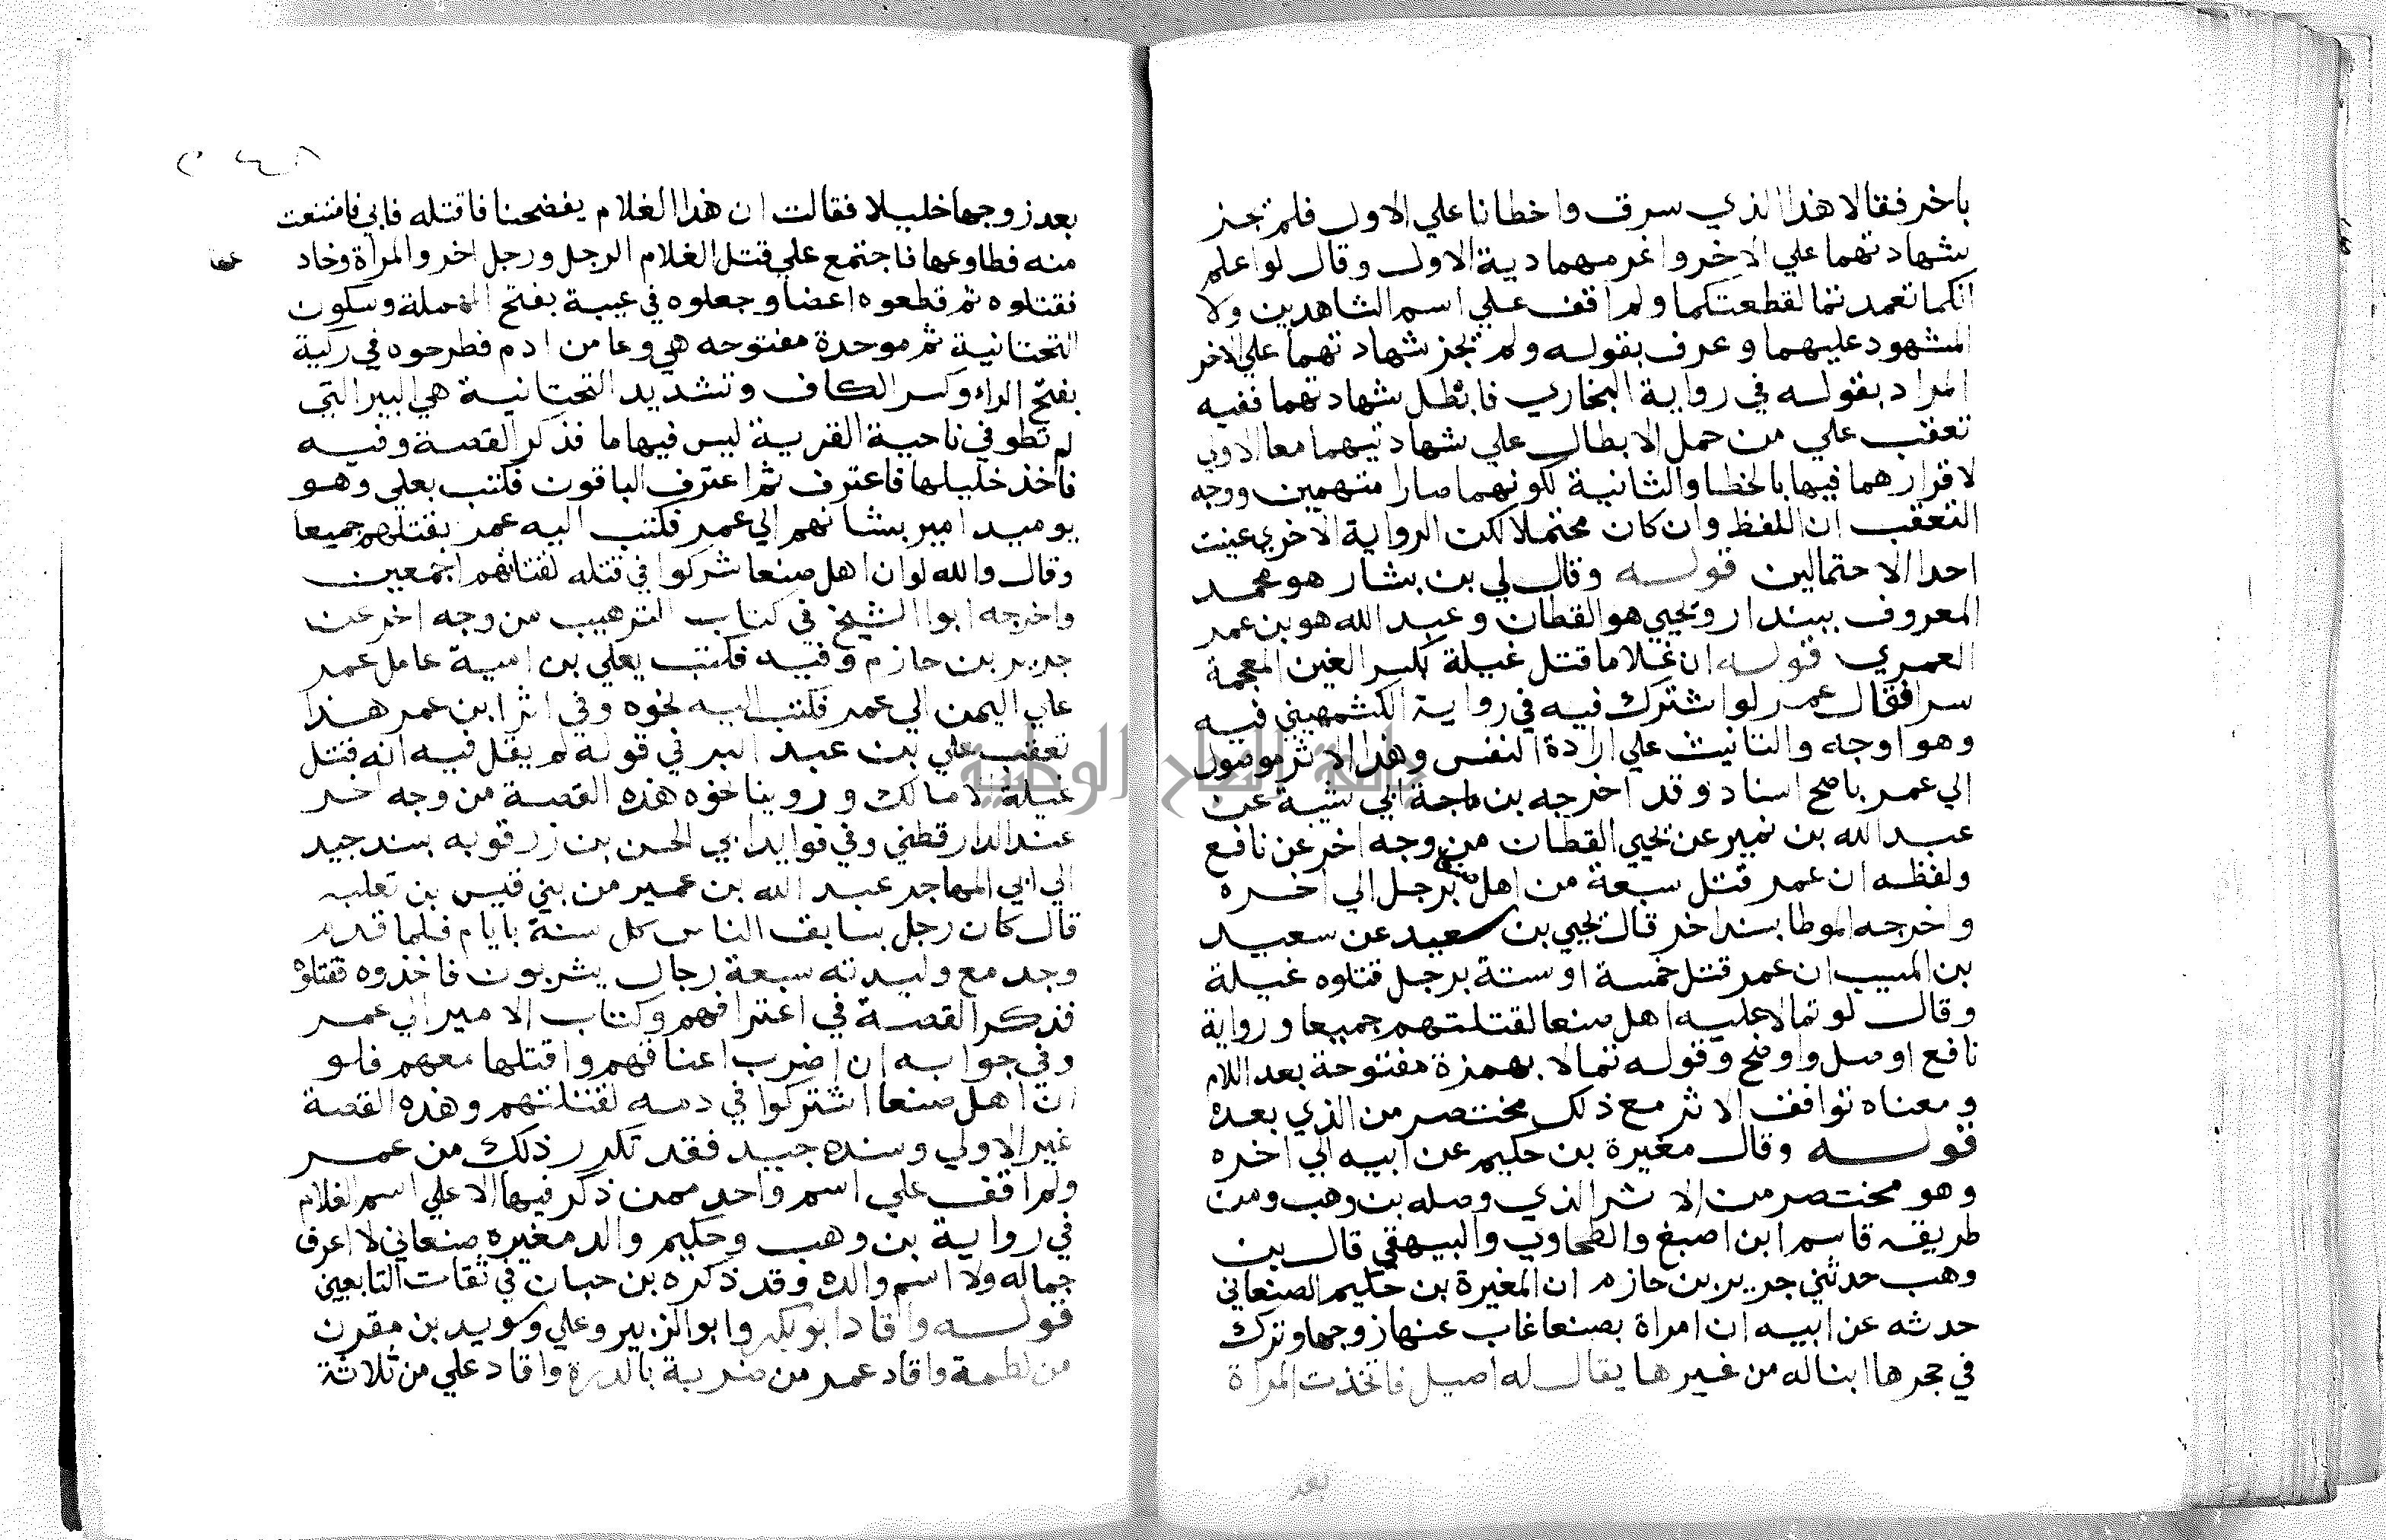 باخر فقالا هذا الذي سرق واخطانا علي الاول فلم تجز
شهادتهما علي الاخر واغرمهما دية الاول وقال لو اعلم
انكما تعمدتما لقطعتكما ولم اقف علي اسم الشاهدين ولا
المشهود عليهما وعرف بقوله ولم تجز شهادتهما علي الاخر
المراد بقوله في رواية البخاري فابطل شهادتهما ففيه
تعقب علي من حمل الابطال علي شهادتيهما معا الاولي
لاقرارهما فيها بالخطا والثانية لكونهما صارا متهمين ووجه
التعقب ان اللفظ وان كان محتملا لكن الرواية الاخري عينت
احد الاحتمالين قوله وقال لي بن بشار هو محمد
المعروف ببندار ويحيي هو القطان وعبد الله هو بن عمر
العمري قوله ان غلاما قتل غيلة بكسر الغين المعجمة
سرا فقال عمر لو اشترك فيه في رواية الكشمهيني فيه
وهو اوجه والتانيث علي ارادة النفس وهذا الاثر موصول
الي عمر باصح اسناد وقد اخرجه بن ابي شيبة عن
عبد الله بن نمير عن يحيي القطان من وجه اخر عن نافع
ولفظه ان عمر قتل سبعة من اهل صنعا برجل الي اخره
واخرجه الموطا بسند اخر قال يحيي بن سعيد عن سعيد
بن المسيب ان عمر قتل خمسة او ستة برجل قتلوه غيلة
وقال لو تمالا عليه اهل صنعا لقتلتهم جميعا ورواية
نافع اوصل واوضح وقوله تمالا بهمزة مفتوحة بعد اللام
ومعناه توافق الاثر مع ذلك مختصر من الذي بعده
قوله وقال مغيرة بن حكيم عن ابيه الي اخره
وهو مختصر من الاثر الذي وصله بن وهب ومن
طريقه قاسم ابن اصبغ والطحاوي والبيهقي قال بن
وهب حدثني جرير بن حازم ان المغيرة بن حكيم الصنعاني
حدثه عن ابيه ان امراة بصنعا غاب عنها زوجها وترك
في حجرها ابنا له من غيرها يقال له اصيل فاتخذت المراة
بعد
٢٤٨
بعد زوجها خليلا فقالت ان هذا الغلام يفضحنا فاقتله فابي فامتنعت
منه فطاوعها فاجتمع علي قتل الغلام الرجل ورجل اخر والمراة وخاد
فقتلوه ثم قطعوه اعضا وجعلوه في عيبة بفتح المهملة وسكون
التحتانية ثم موحدة مفتوحه هي وعا من ادم فطرحوه في ركية
بفتح الراء وكسر الكاف وتشديد التحتانية هي البير التي
لم تطو في ناحية القرية ليس فيها ما فذكر القصة وفيه
فاخذ خليلها فاعترف ثم اعترف الباقون فكتب يعلي وهو
يوميد امير بشانهم الي عمر فكتب اليه عمر بقتلهم جميعا
وقال والله لو ان اهل صنعا شركوا في قتله لقتلتهم اجمعين
واخرجه ابوا الشيخ في كتاب الترهيب من وجه اخر عن
جرير بن حازم وفيه فكتب يعلي بن امية عامل عمر
علي اليمن الي عمر فكتب اليه نحوه وفي اثر ابن عمر هذا
تعقب علي بن عبد البر في قوله لم يقل فيه انه قتل
غيلة الا مالك وروينا نحوه هذه القصة من وجه اخر
عند الدارقطني وفي فوايد ابي الحسن بن زرقويه بسند جيد
الي ابي المهاجر عبد الله بن عمير من بني قيس بن ثعلبه
قال كان رجل يسابق الناس كل سنة بايام فلما قدم
وجد مع وليدته سبعة رجال يشربون فاخذوه فقتلوه
فذكر القصة في اعترافهم وكتاب الامير الي عمر
وفي جوابه ان اضرب اعناقهم واقتلها معهم فلو
ان اهل صنعا اشتركوا في دمه لقتلتهم وهذه القصة
غير الاولي وسنده جيد فقد تكرر ذلك من عمر
ولم اقف علي اسم واحد ممن ذكر فيها الا علي اسم الغلام
في رواية بن وهب وحكيم والد مغيرة صنعاني لا اعرف
حماله ولا اسم والده وقد ذكره بن حبان في ثقات التابعين
قوله واقاد ابو بكر وابو الزبير وعلي وسويد بن مقرن
من لطمة واقاد عمر من ضربة بالدرة واقاد علي من ثلاثة
جامعة النجاح الوطنية